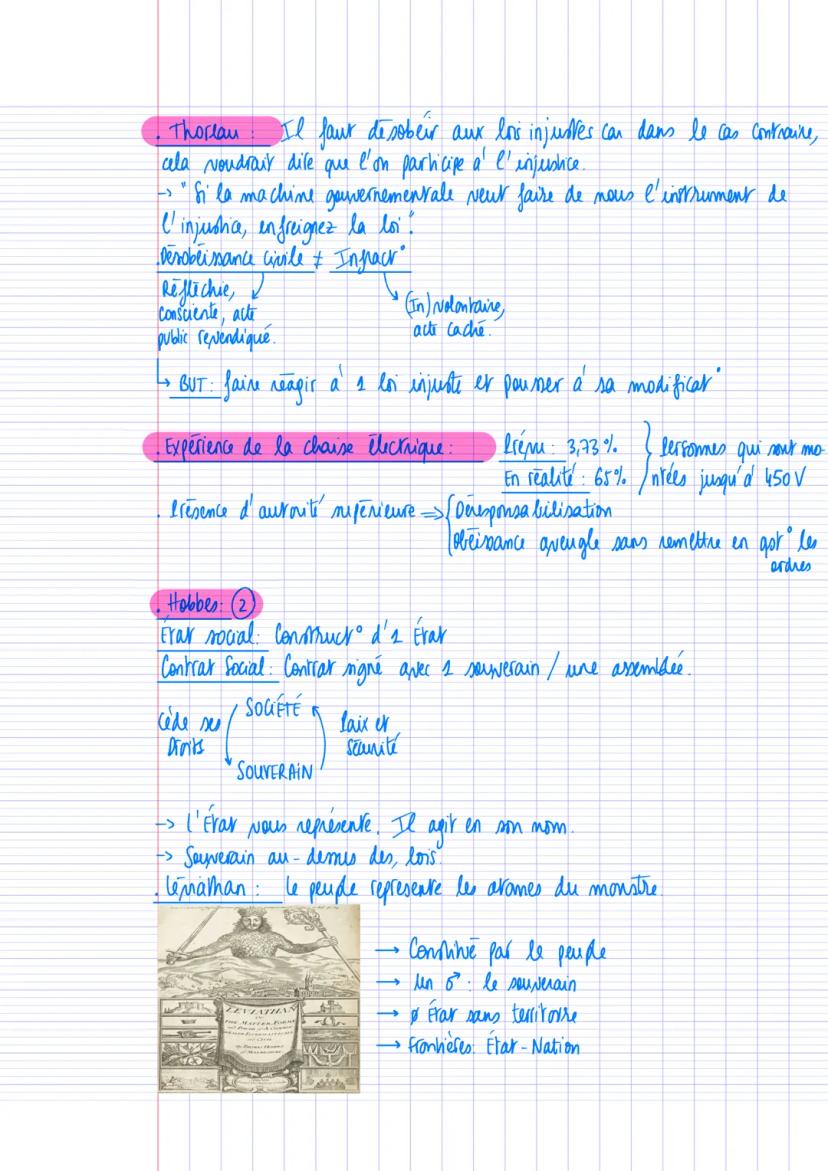 . Thoreau : Il faut désobéir aux lois injustes car dans le cas contraire,
cela voudrait dire que l'on participe à l'injustice.
-> "Si la machine gouvernementale veut faire de nous l'instrument de
l'injustice, enfreignez la loi".
.Désobéissance civile ≠ Infract°
Réfléchie,
consciente, acte
public revendiqué.
(In)volontaire,
acte caché.
↳ BUT : faire réagir à 1 loi injuste et pousser à sa modificat°
. Expérience de la chaise électrique : Prévu : 3,73 % } Personnes qui sont mo-
En réalité : 65% ntées jusqu'à 450 V
. Présence d'autorité supérieure => { Déresponsabilisation
obéissance aveugle sans remettre en qst° les
ordres
. Hobbes : (2)
État social : Construct° d'1 État
Contrat Social : Contrat signé avec 1 souverain / une assemblée.
Cède ses
Droits
SOCIÉTÉ
SOUVERAIN
Paix et
Sécurité
-> L'État nous représente. Il agit en son nom.
-> Souverain au-dessus des lois.
. Léviathan : Le peuple représente les atomes du monstre.
→ Constitué par le peuple
→ Un ♂ : le souverain
→ ø État sans territoire
→ Frontières : État-Nation
LEVIATHAN